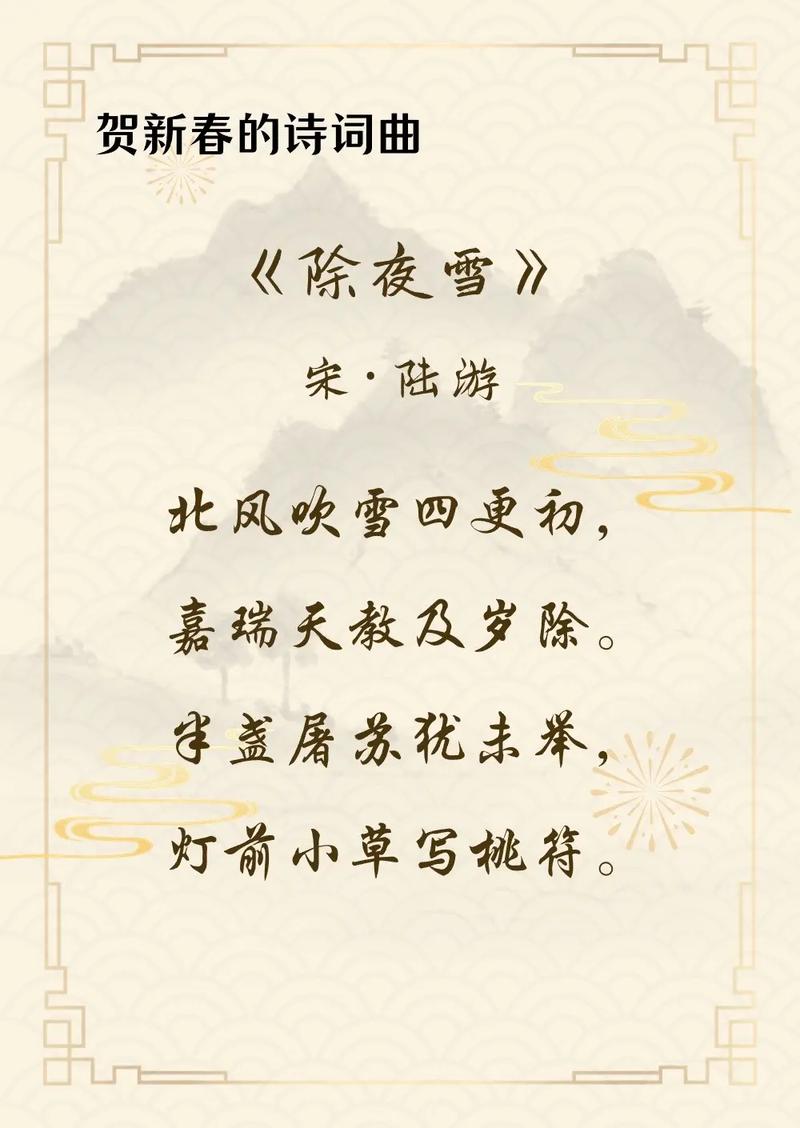 贺新春的诗词曲
《除夜雪》
宋·陆游
北风吹雪四更初，
嘉瑞天教及岁除。
半盏屠苏犹未举，
灯前小草写桃符。